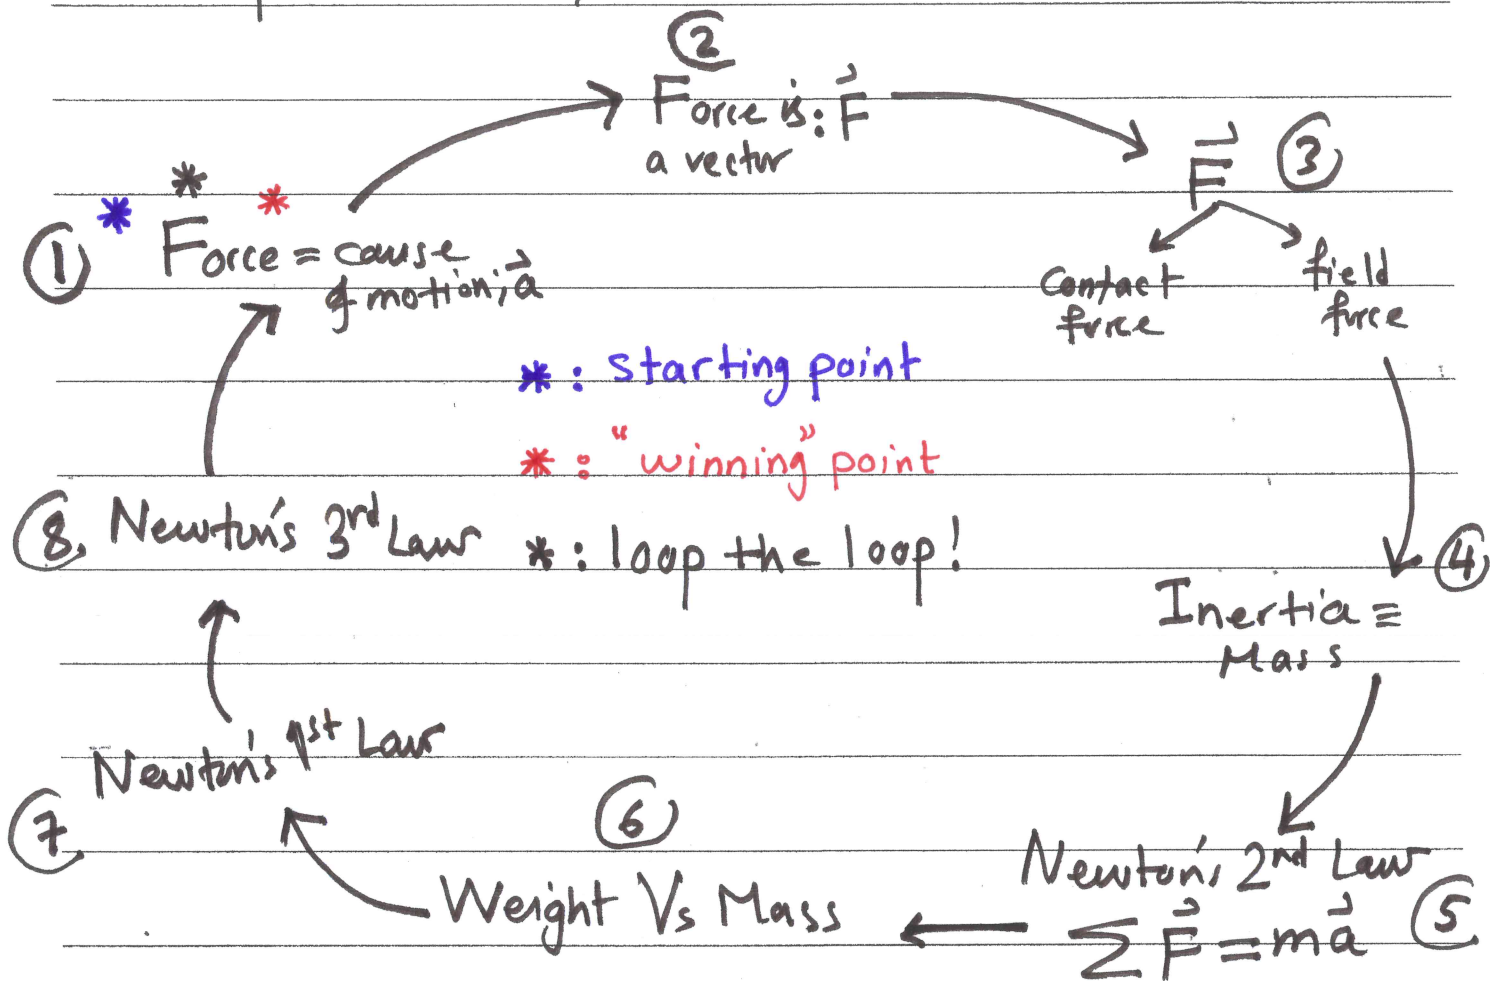 ②
Force is: F⃗
a vector
F⃗ ③
contact
force
field
force
* * *
① Force = cause
of motion; a⃗
*: starting point
*: "winning" point
*: loop the loop!
④
Inertia ≡
Mass
Newton's 2nd Law
∑ F⃗ = ma⃗ ⑤
⑥
Weight Vs Mass
⑦ Newton's 1st Law
⑧. Newton's 3rd Law